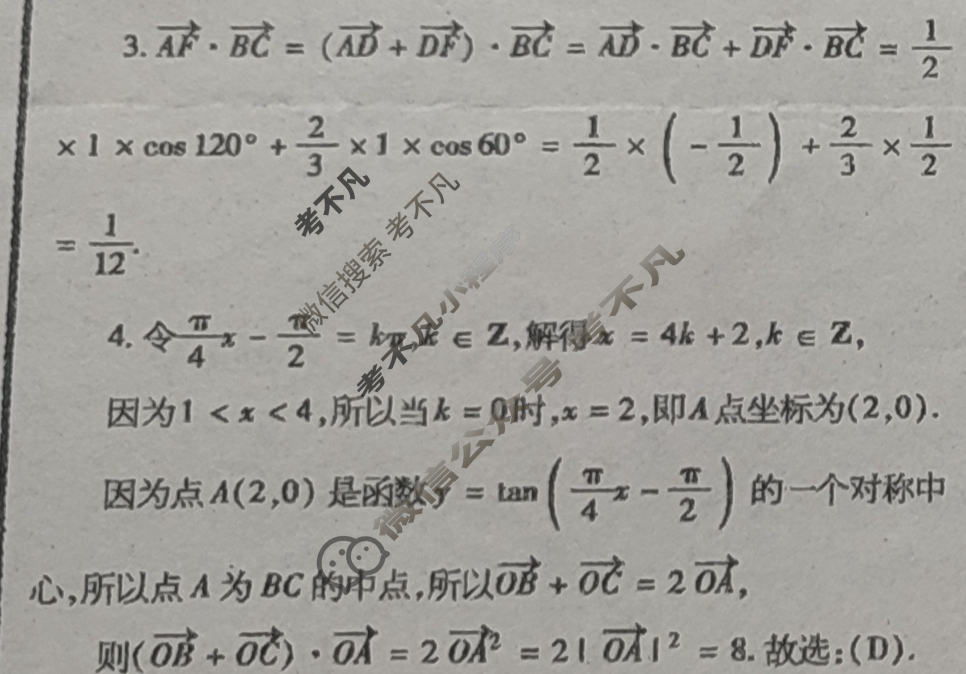 3. $\overrightarrow{AF} \cdot \overrightarrow{BC} = (\overrightarrow{AD} + \overrightarrow{DF}) \cdot \overrightarrow{BC} = \overrightarrow{AD} \cdot \overrightarrow{BC} + \overrightarrow{DF} \cdot \overrightarrow{BC} = \frac{1}{2}$
$\times 1 \times \cos 120° + \frac{2}{3} \times 1 \times \cos 60° = \frac{1}{2} \times \left( -\frac{1}{2} \right) + \frac{2}{3} \times \frac{1}{2}$
$= \frac{1}{12}$.
4. 令$\frac{π}{4}x - \frac{π}{2} = kπ, k ∈ \mathbf{Z}$,解得$x = 4k + 2, k ∈ \mathbf{Z}$,
因为$1 < x < 4$,所以当$k = 0$时,$x = 2$,即$A$点坐标为$(2,0)$.
因为点$A(2,0)$是函数$y = \tan\left( \frac{π}{4}x - \frac{π}{2} \right)$的一个对称中
心,所以点$A$为$BC$的中点,所以$\overrightarrow{OB} + \overrightarrow{OC} = 2\overrightarrow{OA}$,
则$(\overrightarrow{OB} + \overrightarrow{OC}) \cdot \overrightarrow{OA} = 2\overrightarrow{OA}^2 = 2|\overrightarrow{OA}|^2 = 8$.故选:(D).
考不凡
微信搜索 考不凡
考不凡小程序
微信公众号 考不凡